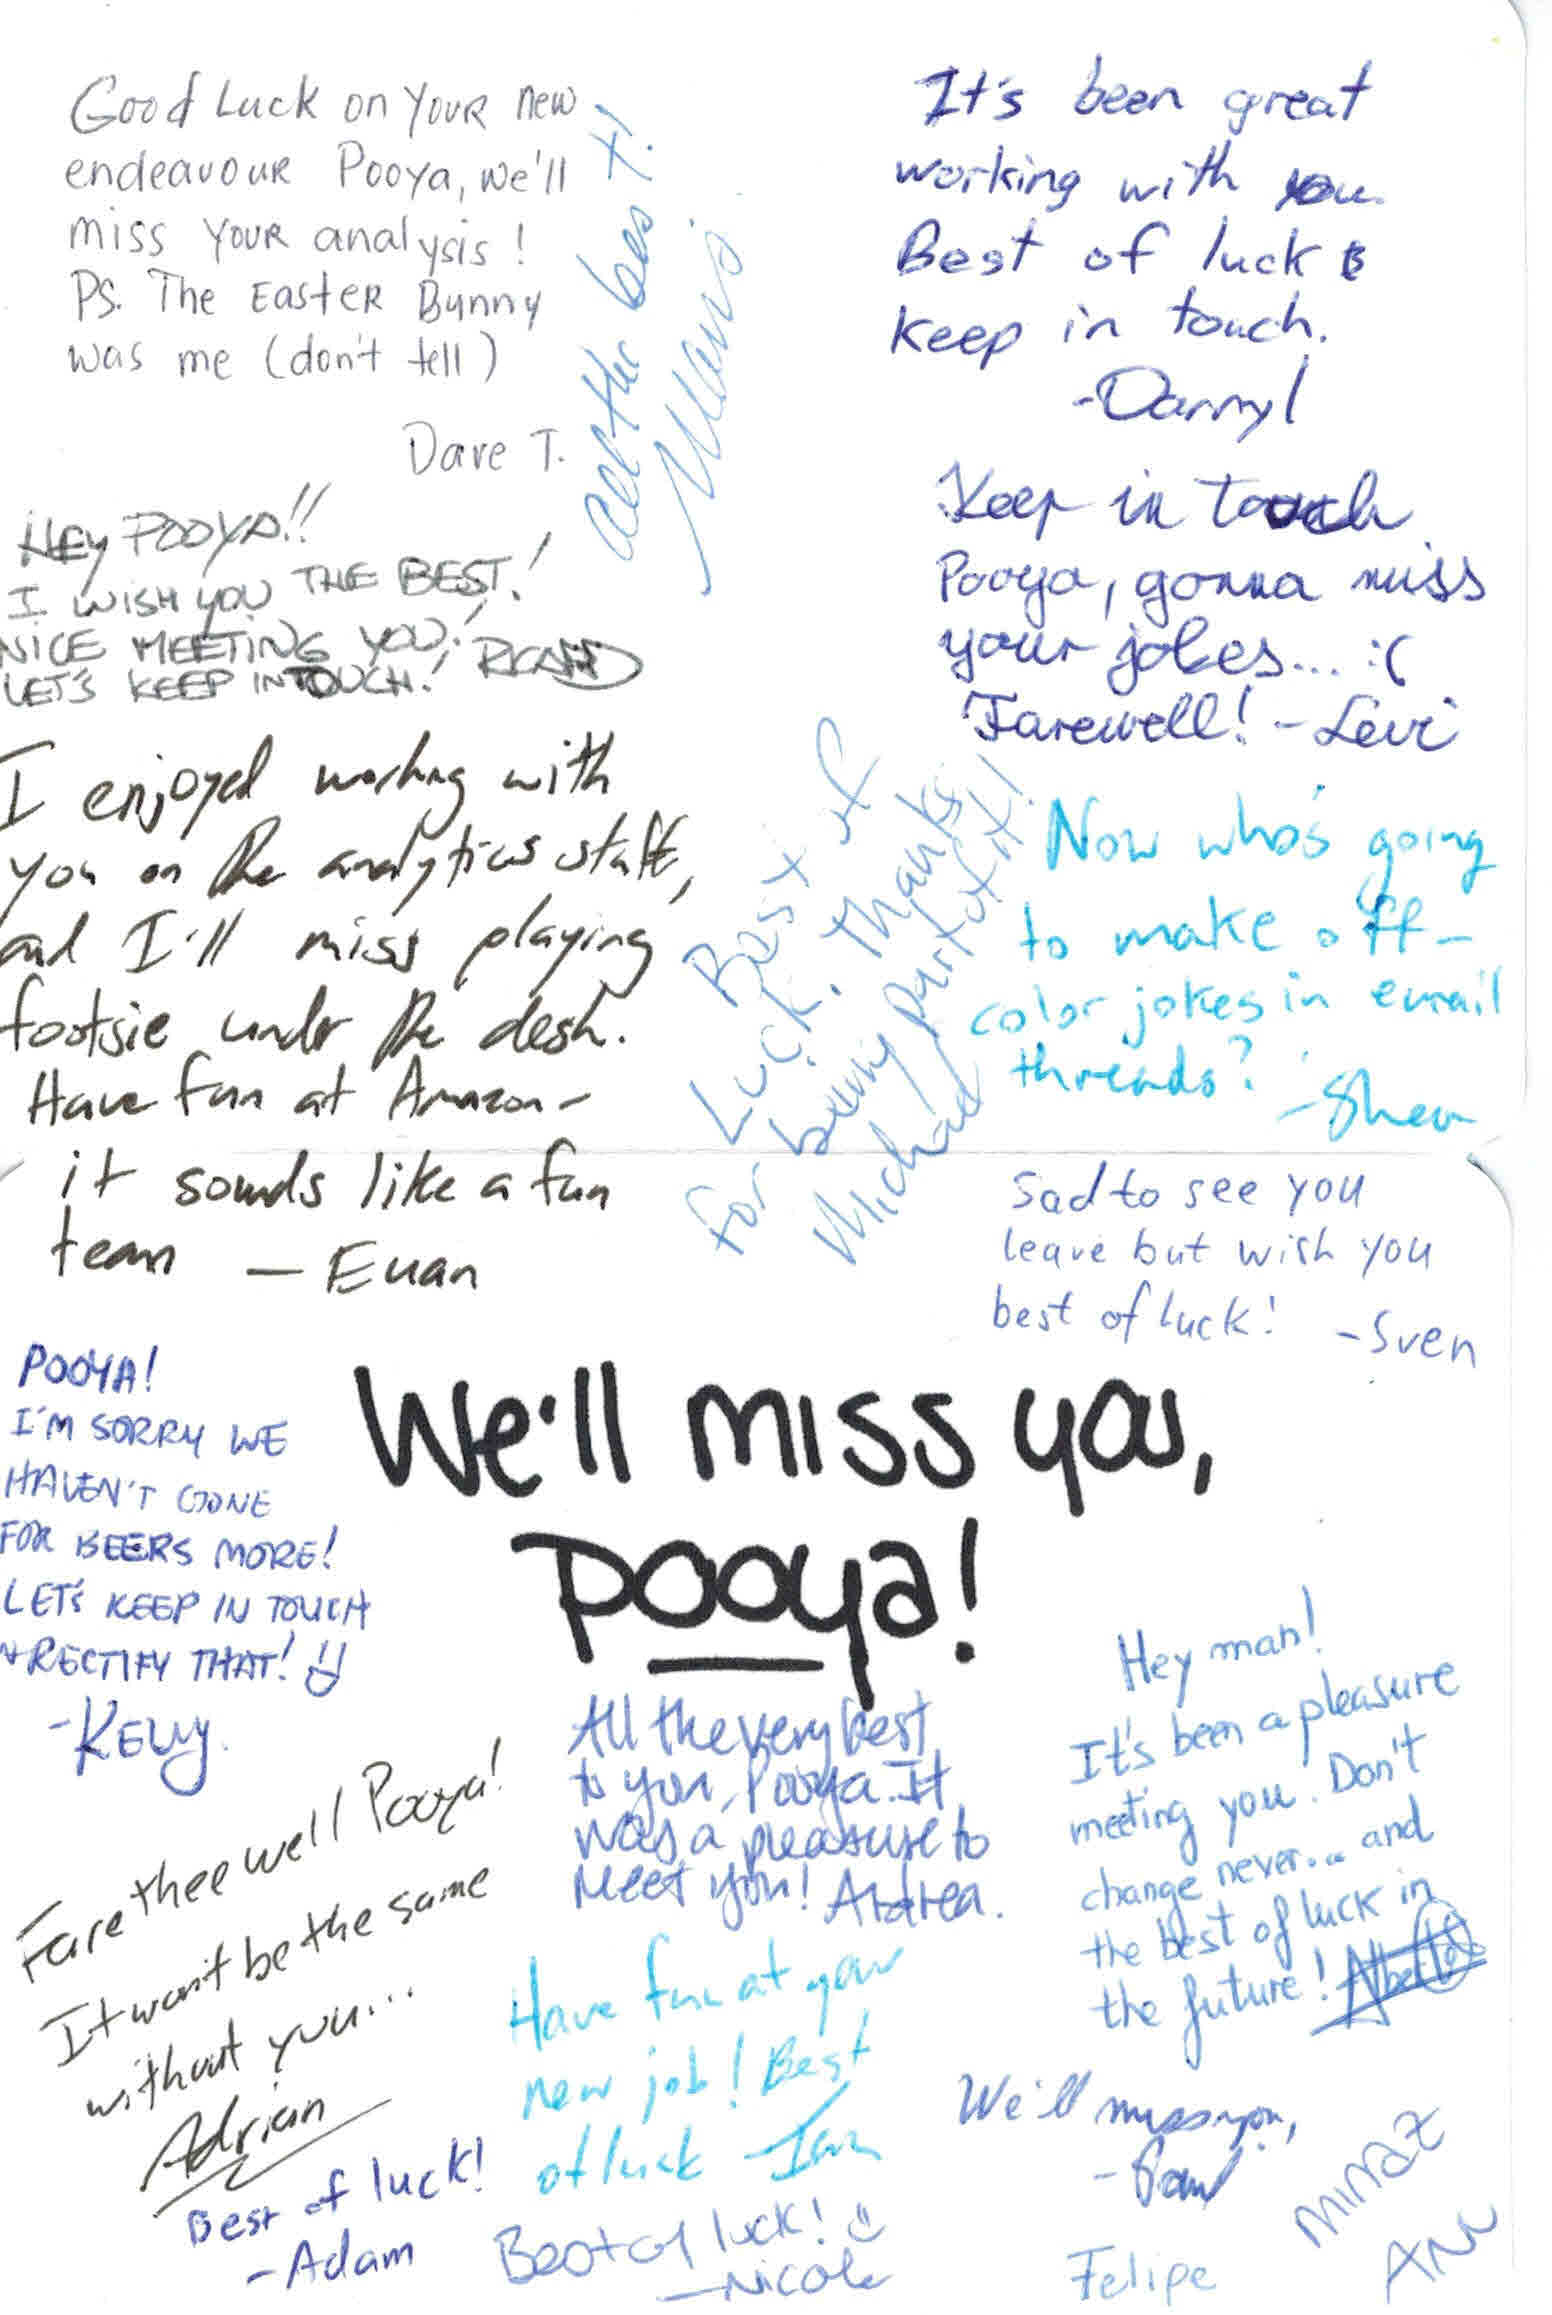 Good Luck on your new
endeavour Pooya, we'll
miss your analysis!
PS. The Easter Bunny
was me (don't tell)
Dave T.
all the best!
It's been great
working with you.
Best of luck &
keep in touch.
-Darryl
HEY POOYA!!
I WISH YOU THE BEST!
NICE MEETING YOU!
LET'S KEEP IN TOUCH!
Keep in touch
Pooya, gonna miss
your jokes... :(
Farewell! - Levi
I enjoyed working with
you on the analytics staff,
and I'll miss playing
footsie under the desk.
Have fun at Amazon-
it sounds like a fun
team - Euan
Best of
Luck. Thanks
for being part of it!
Michael
Now who's going
to make off-
color jokes in email
threads?
Sad to see you
leave but wish you
best of luck!
-Sven
We'll miss you,
Pooya!
POOYA!
I'M SORRY WE
HAVEN'T GONE
FOR BEERS MORE!
LET'S KEEP IN TOUCH
+ RECTIFY THAT!
-KELLY.
All the very best
to you, Pooya. It
was a pleasure to
meet you! Andrea.
Hey man!
It's been a pleasure
meeting you. Don't
change never... and
the best of luck in
the future! Alberto
Fare thee well Pooya!
It won't be the same
without you...
Adrian
Have fun at your
new job! Best
of luck -Ian
We'll miss you,
-Paul
Best of luck!
-Adam
Best of luck!
-Nicole
Felipe
MINAZ
ANN